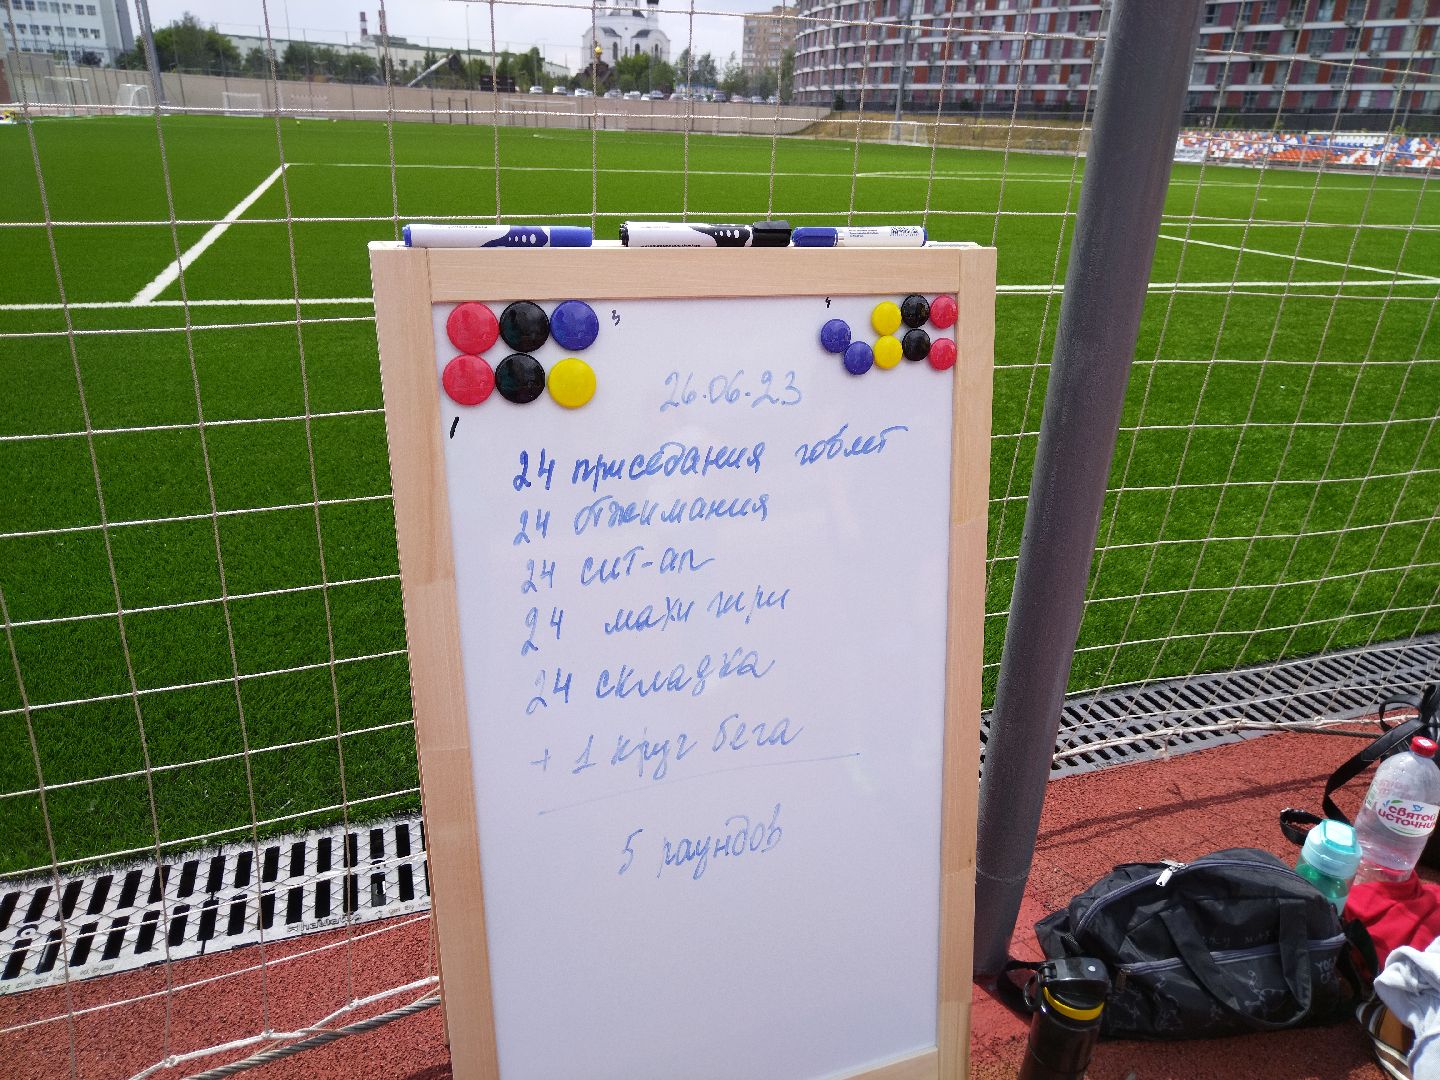 26.06.23
24 приседания гоблет
24 отжимания
24 сит-ап
24 махи гири
24 складка
+ 1 круг бега
5 раундов
святой
источник